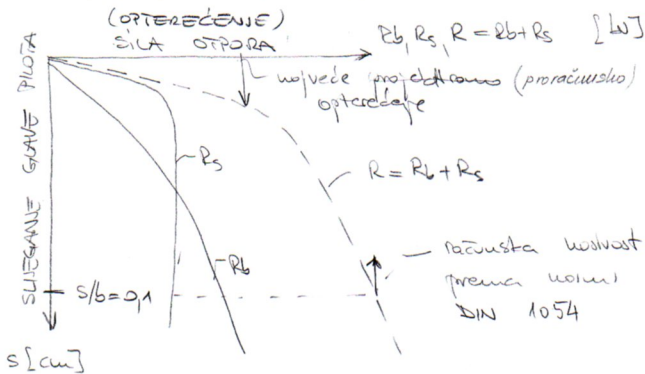 (OPTEREĆENJE)
SILA OTPORA
Rb, Rs, R = Rb + Rs [kN]
najveće projektirano (proračunsko)
opterećenje
SLIJEGANJE GLAVE PILOTA
Rs
R = Rb + Rs
Rb
računska nosivost
prema normi
DIN 1054
S/b = 0,1
S [cm]